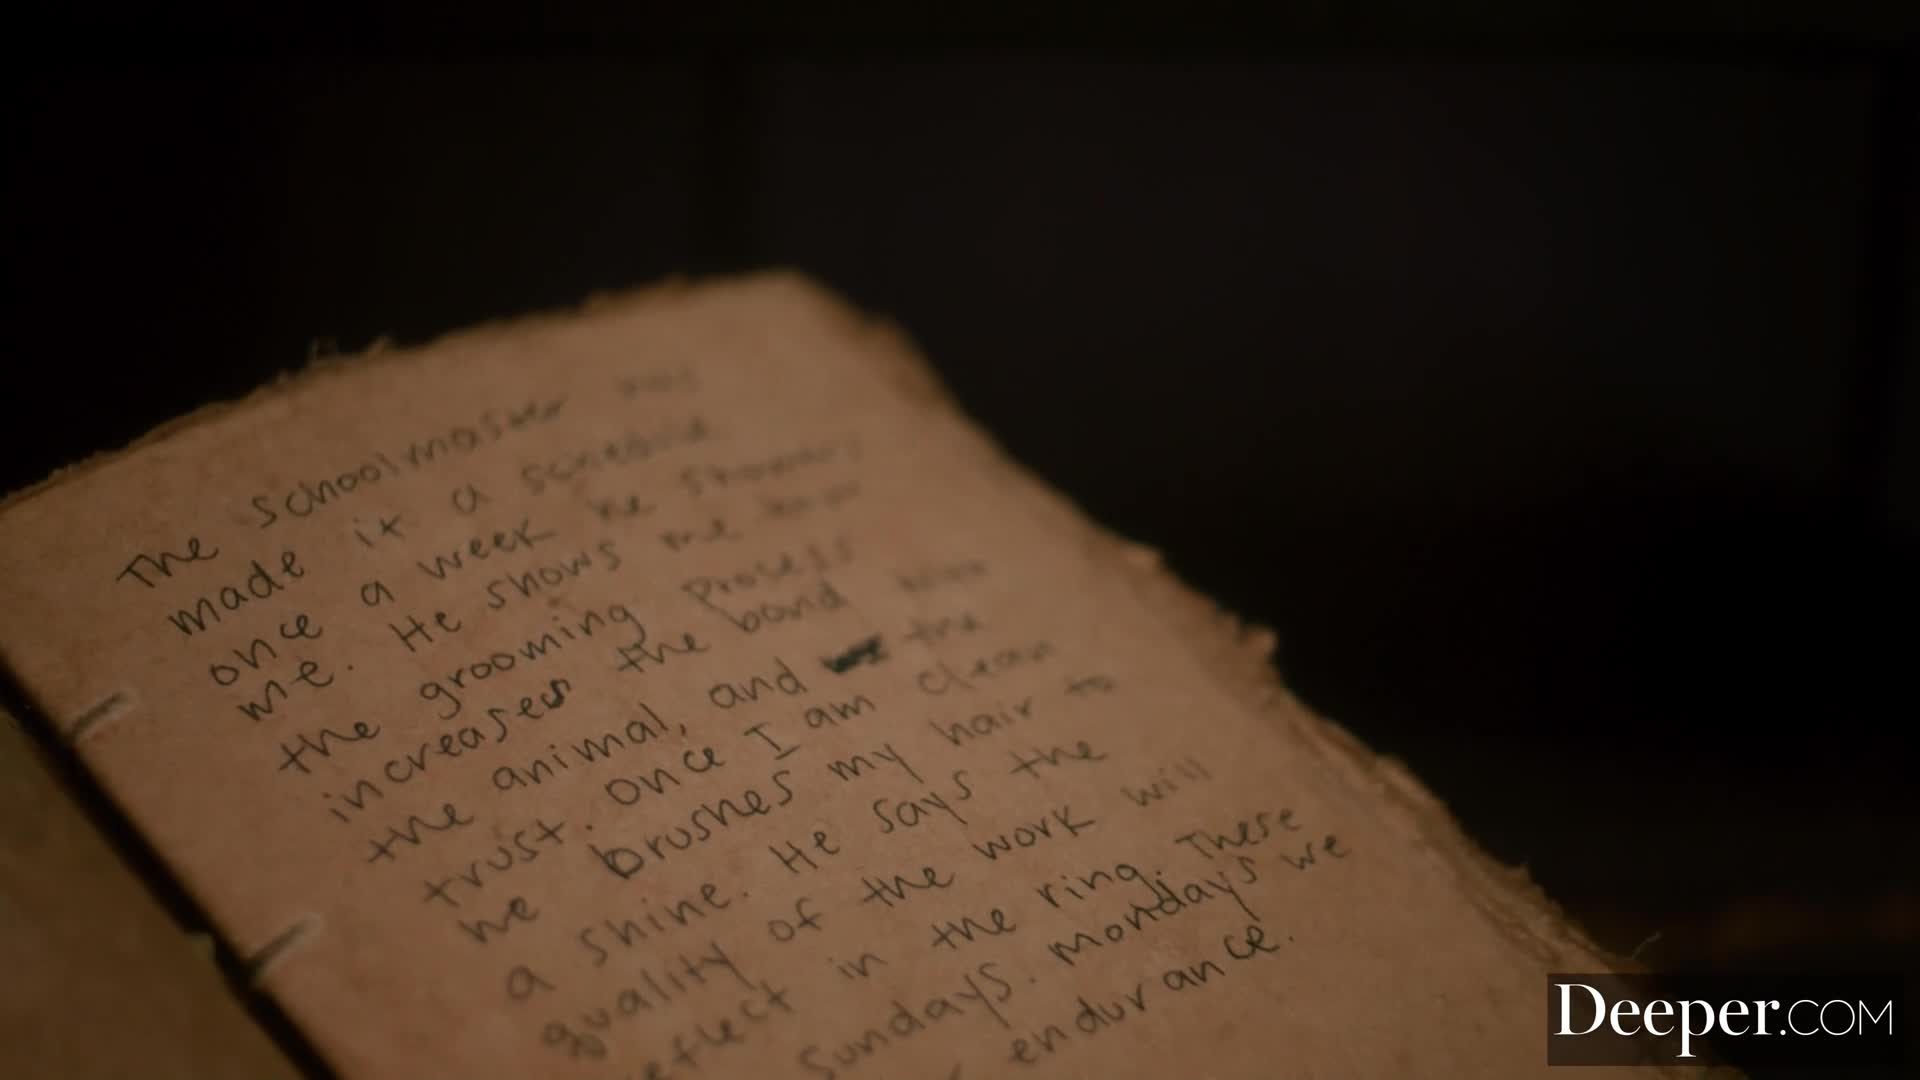 The schoolmaster has
made it a schedule
once a week he showers
me. He shows me how
the grooming prosess
increases the bond
the animal, and the
trust. once I am clean
he brushes my hair to
a shine. He says the
quality of the work will
reflect in the ring. These
Sundays. Mondays we
endurance.
Deeper.COM